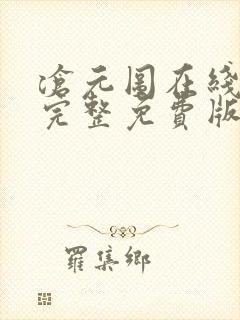 滄元图在线
完整免費版
羅集鄉